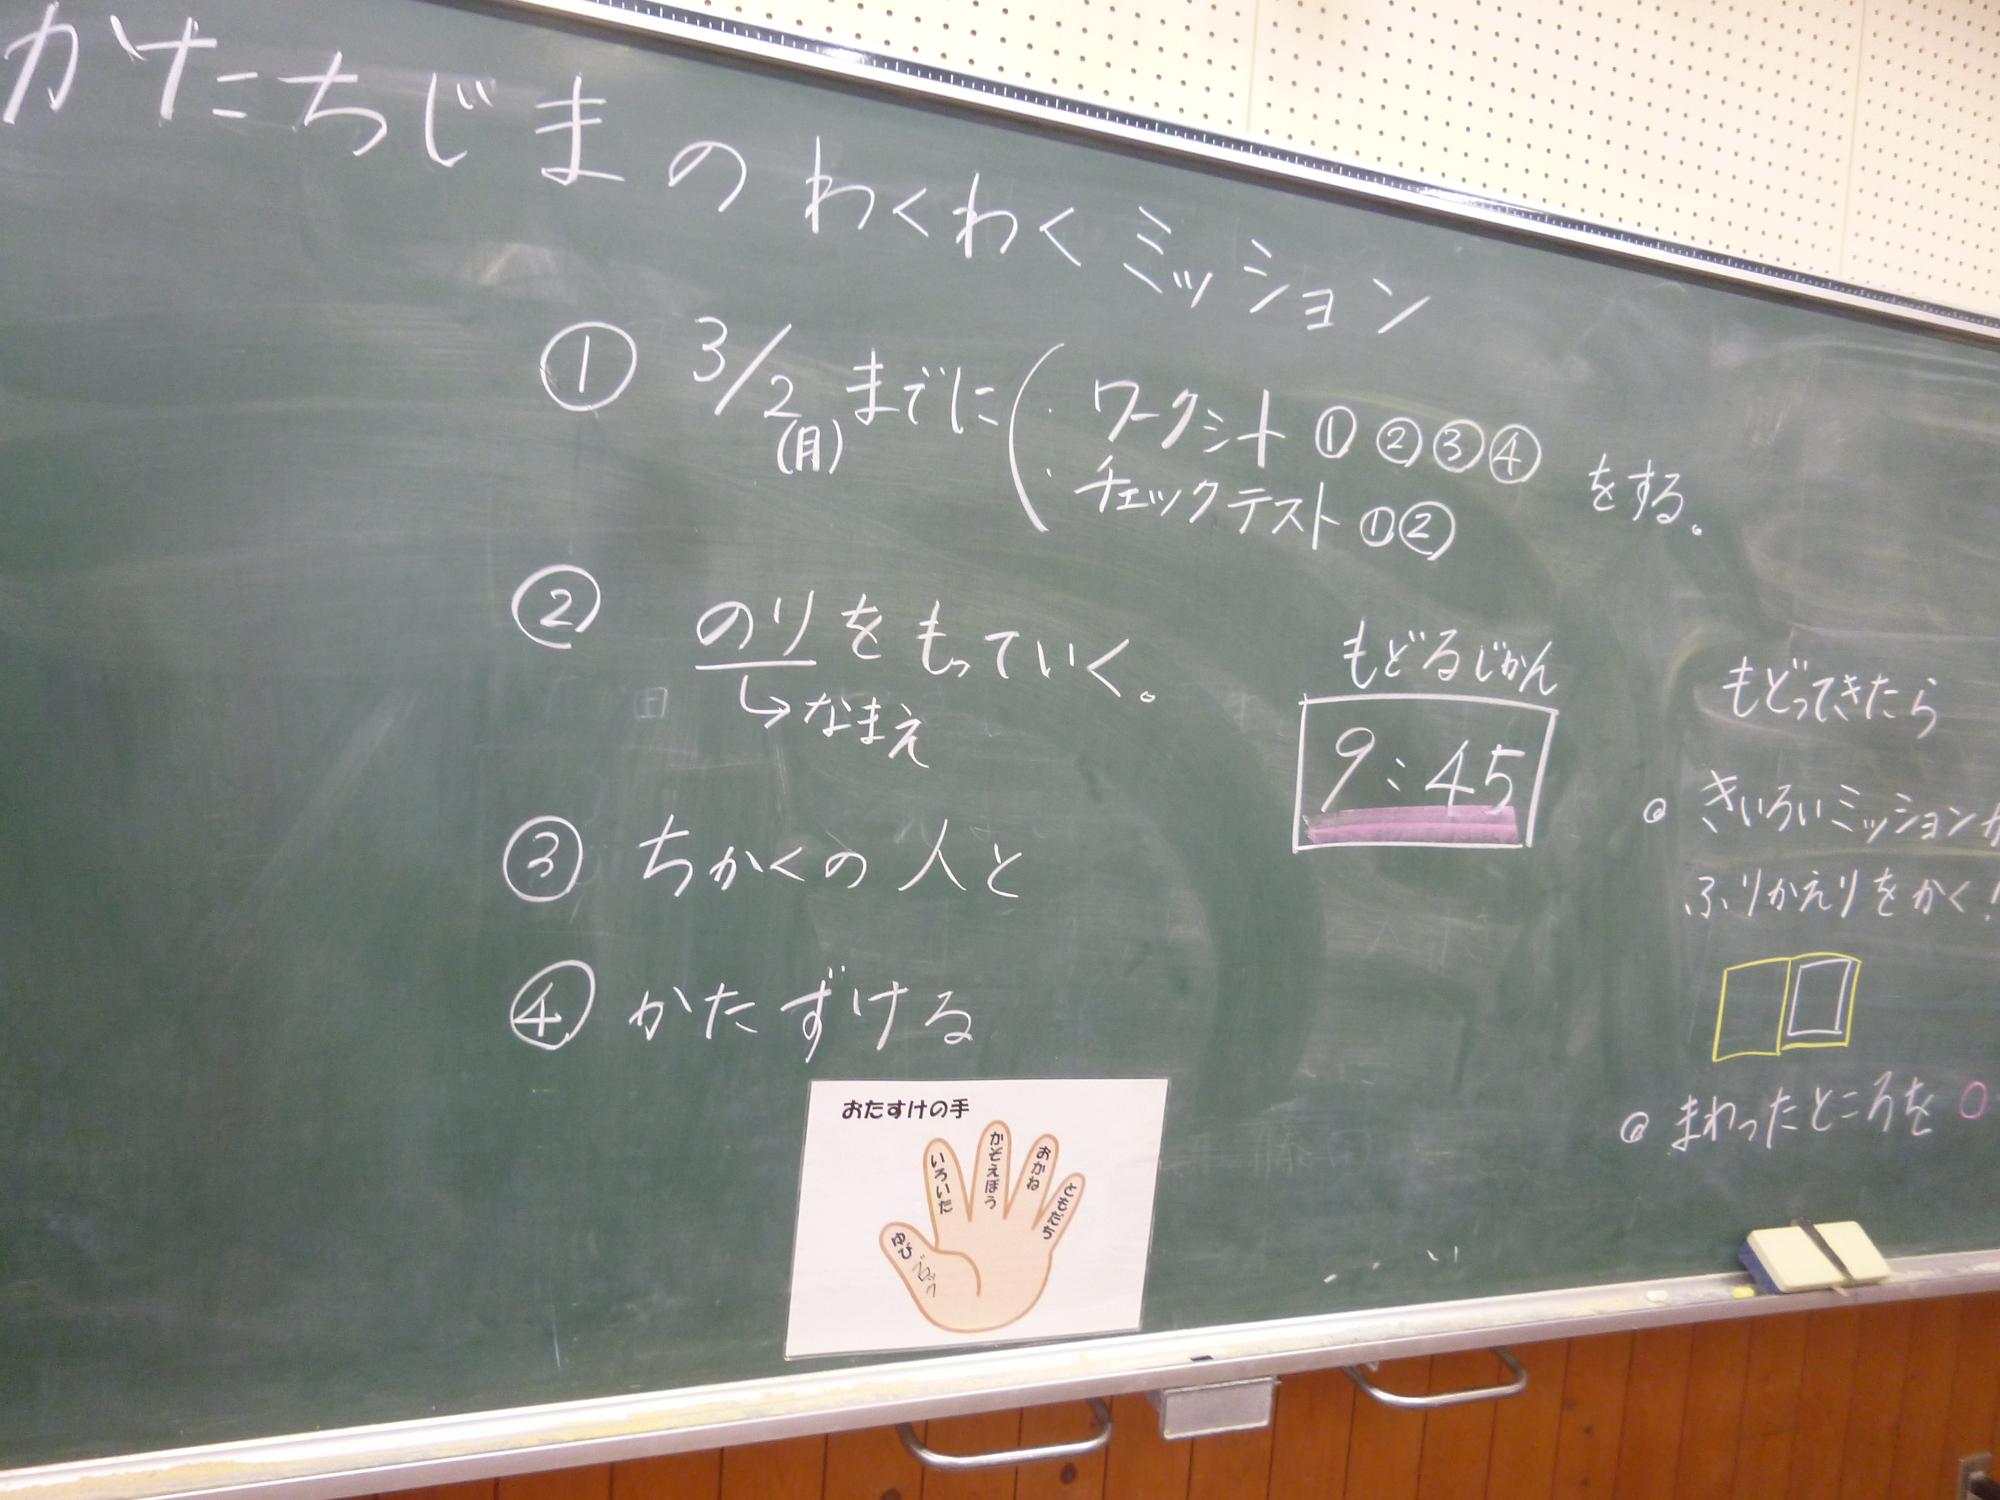 かたちじまのわくわくミッション
① 3/2(月)までに
・ワークシート ①②③④
・チェックテスト ①②
をする。
② のりをもっていく。
↳なまえ
③ ちかくの人と
④ かたずける
もどるじかん
9:45
もどってきたら
◎ きいろいミッションか
ふりかえりをかく!
◎ まわったところを○
おたすけの手
ゆび
いろいた
かぞえぼう
おかね
ともだち